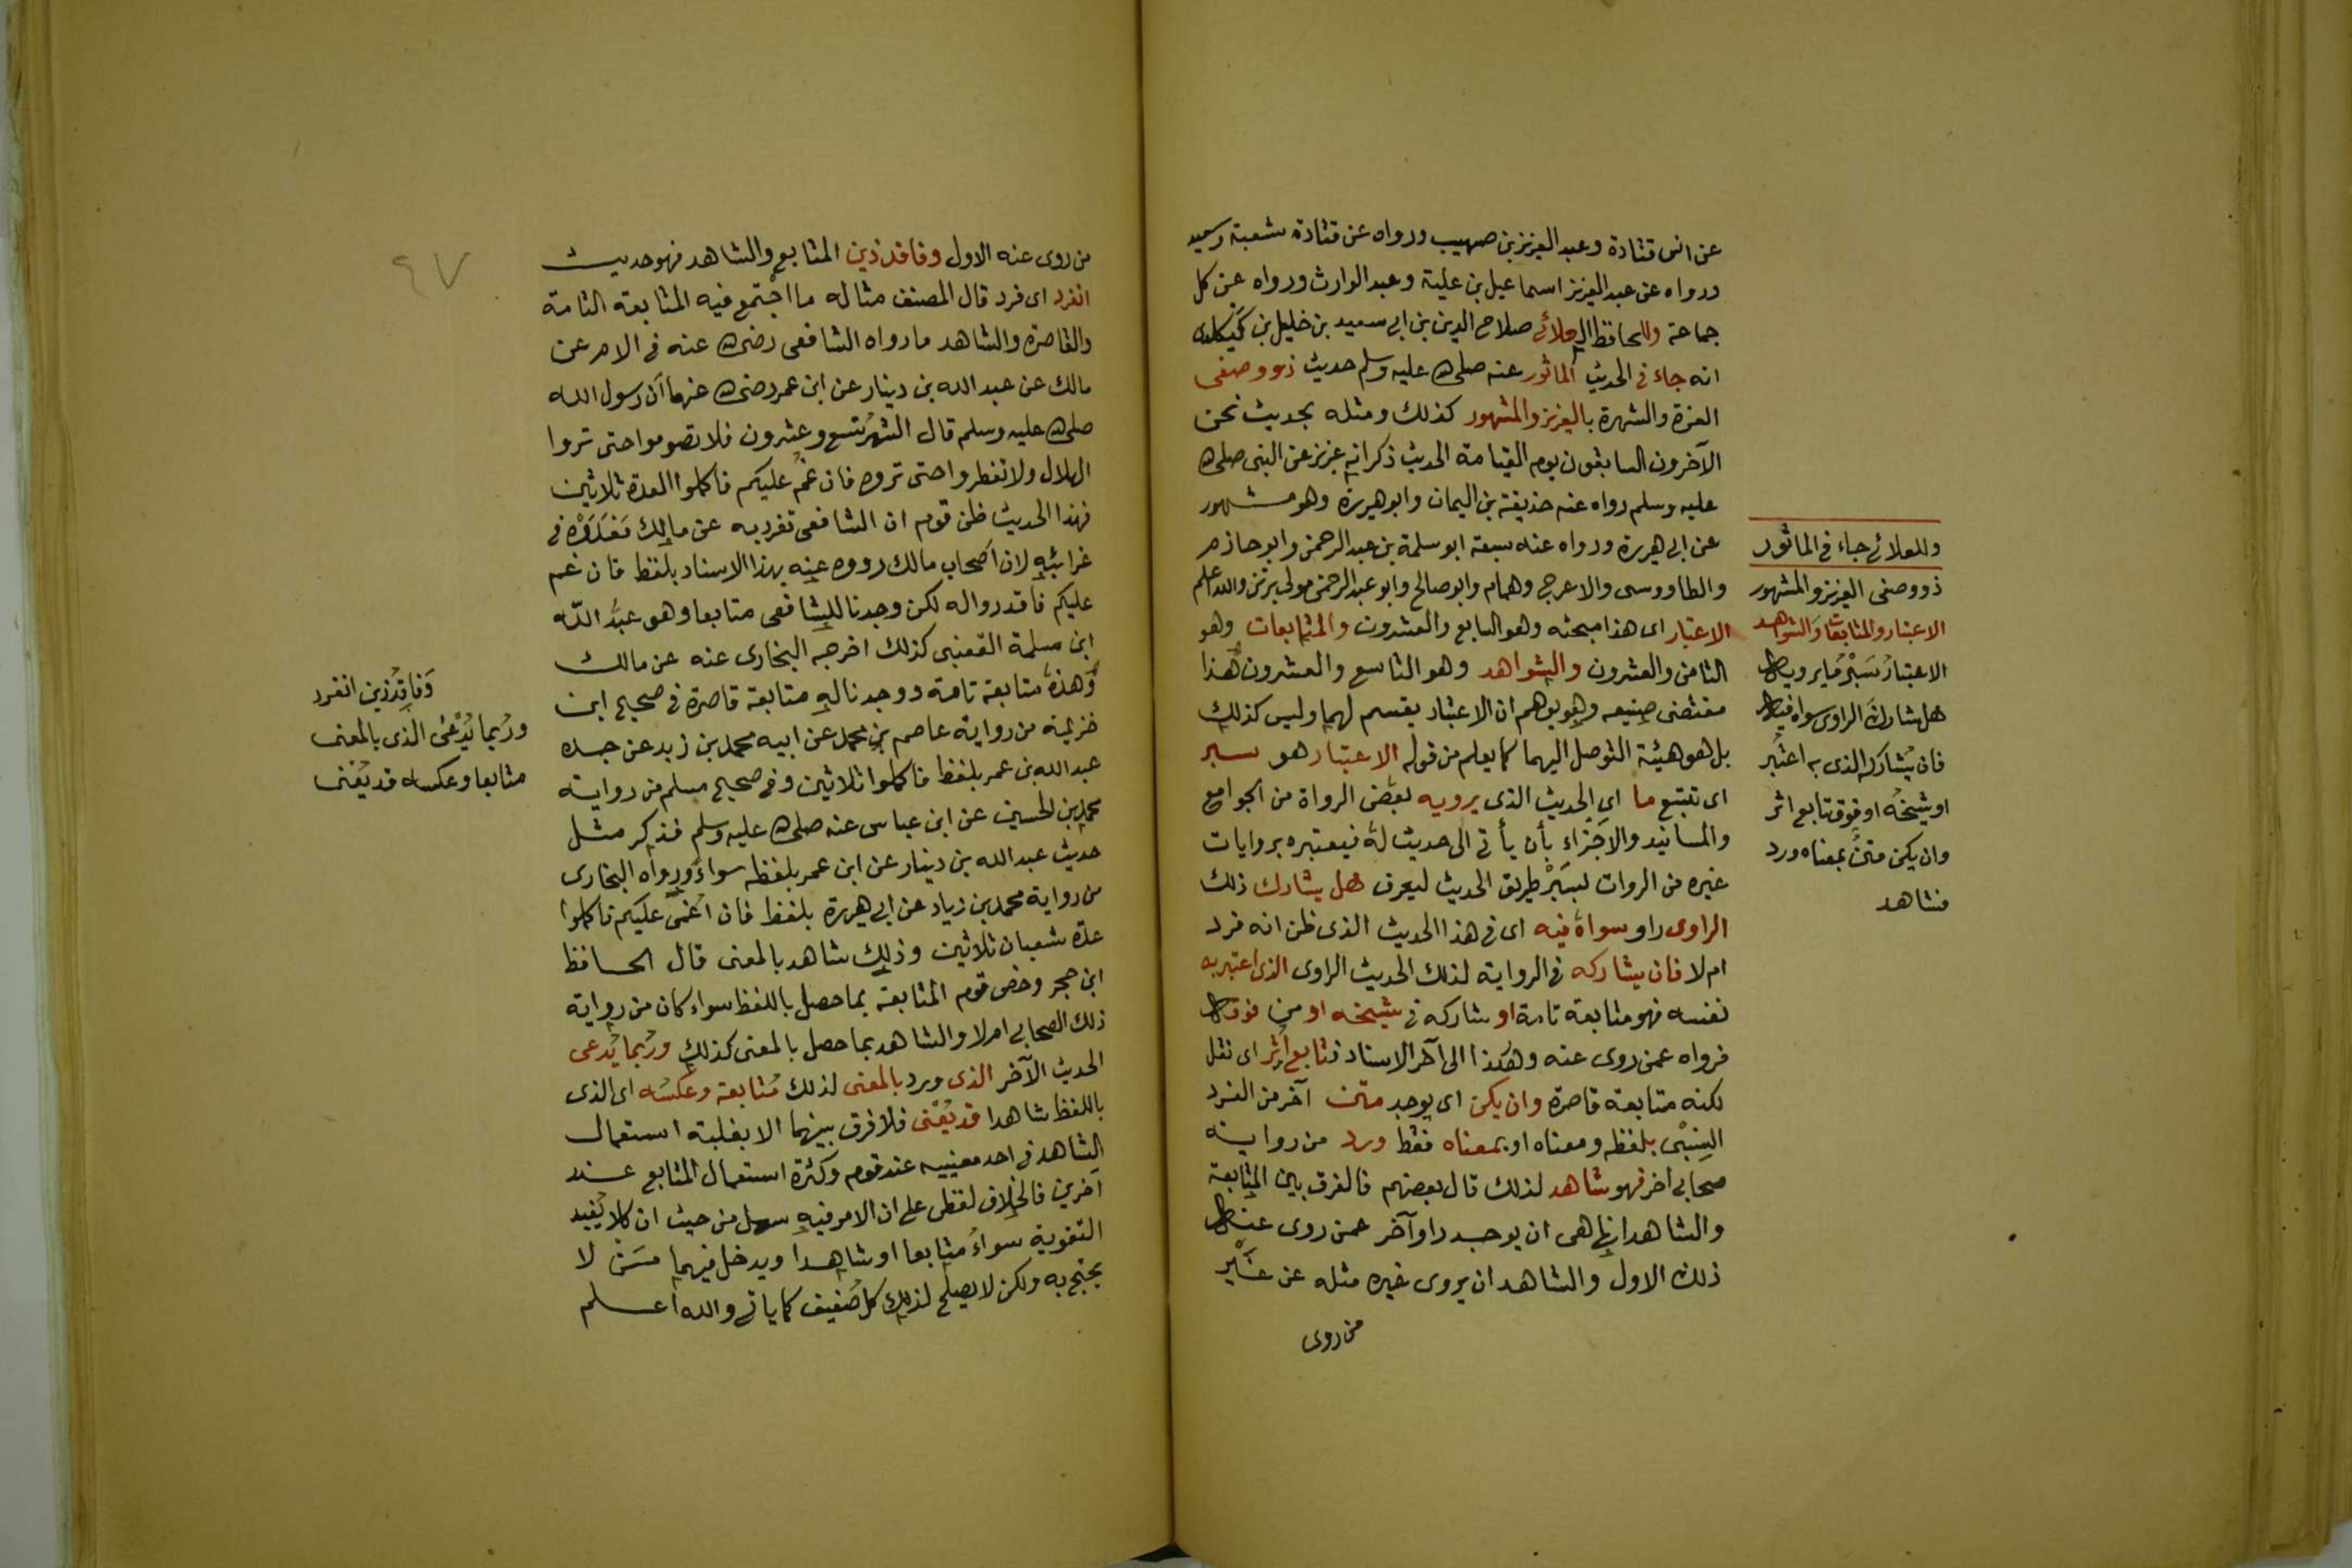 عن انس قتادة وعبد العزيز بن صهيب ورواه عن قتادة شعبة وسعيد
ورواه عن عبد العزيز اسماعيل بن علية وعبد الوارث ورواه عن كل
جماعة وللحافظ العلائي صلاح الدين بن ابي سعيد بن خليل بن كيكلدى
انه جاء في الحديث المأثور عنه صلى الله عليه وسلم حديث ذو وصفى
العزة والشهرة بالعزيز والمشهور كذلك ومثله بحديث نحن
الآخرون السابقون يوم القيامة الحديث ذكر انه عزيز عن النبى صلى الله
عليه وسلم رواه عنه حذيفة بن اليمان وابو هريرة وهو مشهور
عن ابي هريرة ورواه عنه سبعة ابو سلمة بن عبد الرحمن وابو حازم
والطاووسى والاعرج وهمام وابو صالح وابو عبد الرحمن مولى برثن والله اعلم
الاعتبار اى هذا مبحثه وهو السابع والعشرون والمتابعات وهو
الثامن والعشرون والشواهد وهو التاسع والعشرون هذا
مقتضى صنيعه وهو يوهم ان الاعتبار يقسم لهما وليس كذلك
بل هو هيئة التوصل اليهما كما يعلم من قوله الاعتبار هو سبر
اى تتبع ما اى الحديث الذى يرويه بعض الرواة من الجوامع
والمسانيد والاجزاء بأن يأتى الى حديث له فيعتبره بروايات
غيره من الروات لسبر طريق الحديث ليعرف هل يشارك ذلك
الراوى راو سواه فيه اى فى هذا الحديث الذى ظن انه فرد
ام لا فان يشاركه فى الرواية لذلك الحديث الراوى الذى اعتبر به
نفسه فهو متابعة تامة او شاركه فى شيخه او من فوقه
فرواه عمن روى عنه وهكذا الى آخر الاسناد فتابع اثر اى نقل
لكنه متابعة قاصرة وان يكن اى يوجد متن آخر من الفرد
النسبى بلفظه ومعناه او بمعناه فقط ورد من رواية
صحابى اخر فهو شاهد لذلك قال بعضهم فالفرق بين المتابعة
والشاهد انها هى ان يوجد راو آخر عمن روى عنه
ذلك الاول والشاهد ان يروى غيره مثله عن غير
من روى
وللعلائى جاء فى الماثور
ذو وصفى العزيز والمشهور
الاعتبار والمتابعات والشواهد
الاعتبار سبر ما يرويه
هل شارك الراوى سواه فيه
فان يشاركه الذى به اعتبر
او شيخه او فوق تابع اثر
وان يكن متن بمعناه ورد
فشاهد
من روى عنه الاول وفاقد ذين المتابع والشاهد فهو حديث
انفرد اى فرد قال المصنف مثاله ما اجتمع فيه المتابعة التامة
والقاصرة والشاهد ما رواه الشافعى رضى الله عنه فى الام عن
مالك عن عبد الله بن دينار عن ابن عمر رضى الله عنهما ان رسول الله
صلى الله عليه وسلم قال الشهر تسع وعشرون فلا تصوموا حتى تروا
الهلال ولا تفطروا حتى تروه فان غم عليكم فاكملوا العدة ثلاثين
فهذا الحديث ظن قوم ان الشافعى تفرد به عن مالك فعدوه فى
غرائبه لان اصحاب مالك رووه عنه بهذا الاسناد بلفظ فان غم
عليكم فاقدروا له لكن وجدنا للشافعى متابعا وهو عبد الله
ابن مسلمة القعنبى كذلك اخرجه البخارى عنه عن مالك
وهذه متابعة تامة ووجدنا له متابعة قاصرة فى صحيح ابن
خزيمة من رواية عاصم بن محمد عن ابيه محمد بن زيد عن جده
عبد الله بن عمر بلفظ فاكملوا ثلاثين وفى صحيح مسلم من رواية
محمد بن الحسين عن ابن عباس عنه صلى الله عليه وسلم فذكر مثل
حديث عبد الله بن دينار عن ابن عمر بلفظه سواء ورواه البخارى
من رواية محمد بن زياد عن ابي هريرة بلفظ فان اغمى عليكم فاكملوا
عدة شعبان ثلاثين وذلك شاهد بالمعنى قال الحافظ
ابن حجر وخص قوم المتابعة بما حصل باللفظ سواء كان من رواية
ذلك الصحابى ام لا والشاهد بما حصل بالمعنى كذلك وربما يدعى
الحديث الآخر الذى ورد بالمعنى لذلك متابعة وعكسه اى الذى
باللفظ شاهدا قد يعنى فلا فرق بينهما الا بغلبة استعمال
الشاهد فى احد معنييه عند قوم وكثرة استعمال المتابع عند
آخرين فالخلاف لفظى على ان الامر فيه سهل من حيث ان كلا يفيد
التقوية سواء متابعا او شاهدا ويدخل فيهما من لا
يحتج به ولكن لا يصلح لذلك كل ضعيف كما ياتى والله اعلم
وفاقد ذين انفرد
وربما يدعى الذى بالمعنى
متابعا وعكسه قد يعنى
٩٧